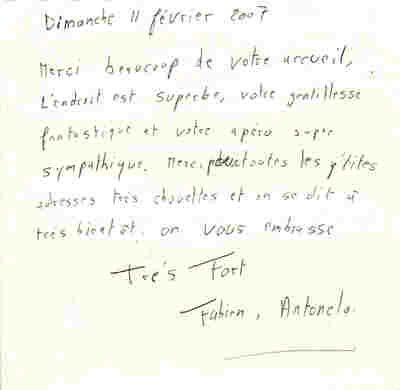 Dimanche 11 février 2007
Merci beaucoup de votre accueil,
L'endroit est superbe, votre gentillesse
fantastique et votre apéro super
sympathique. Merci pour toutes les p'tites
adresses très chouettes et on se dit à
très bientôt. on vous embrasse
Très Fort
Fabien, Antonela.